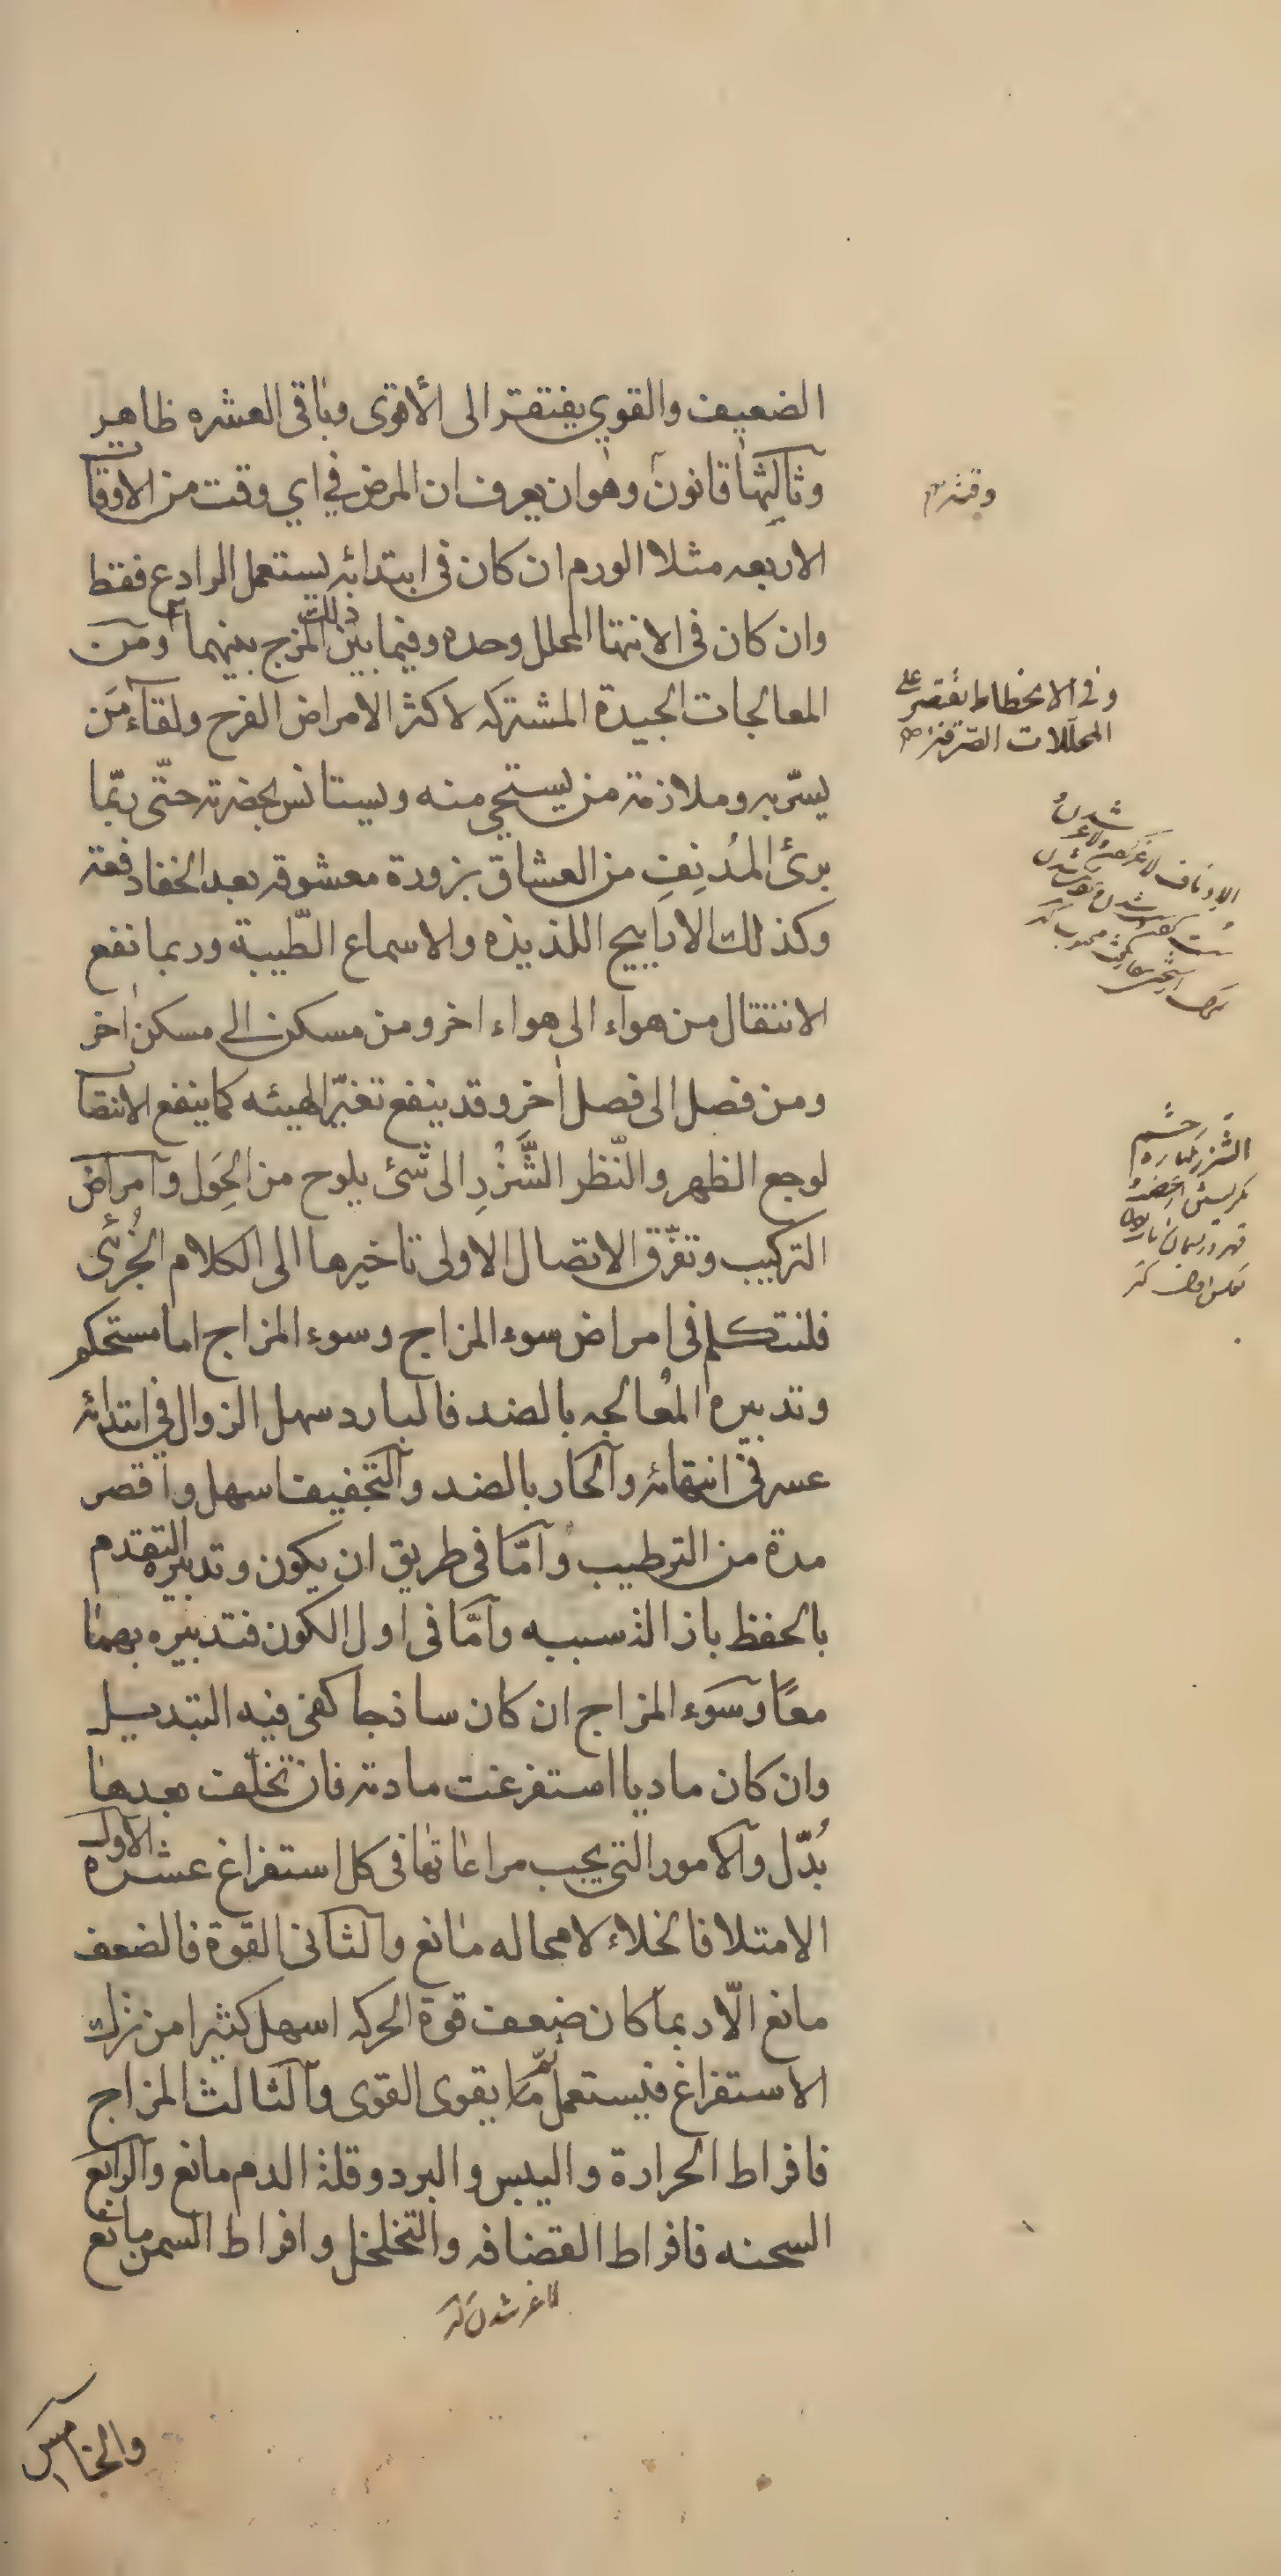 الضعيف والقوي يفتقر الى الأقوى وباقى العشره ظاهر
وثالثها قانون وهو ان يعرف ان المرض في اي وقت من الاوقات
الاربعه مثلا الورم ان كان فى ابتدائه يستعمل الرادع فقط
وان كان فى الانتها المحلل وحده وفيما بين ذلك المزج بينهما ومن
المعالجات الجيدة المشتركه لاكثر الامراض الفرح ولقاء من
يسّر به وملازمة من يستحي منه ويستانس بحضرته حتّى ربّما
برئ المُدنِفِ من العشاق بزورة معشوقه بعد الجفا دفعة
وكذلك الاراييح اللذيذه والاسماع الطّيبة وربما نفع
الانتقال من هواء الى هواء اخر ومن مسكن الى مسكن اخر
ومن فصل الى فصل اخر وقد ينفع تغيّر الهيئه كما ينفع الانتصاب
لوجع الظهر والنّظر الشَّزْرِ الى شئ يلوح من الحِوَل وامراض
التركيب وتفرّق الاتصال الاولى تاخيرها الى الكلام الجُزئى
فلنتكلم فى امراض سوء المزاج وسوء المزاج اما مستحكم
وتدبيره المعالجه بالضد فالبارد سهل الزوال في ابتدائه
عسر فى انتهائه والحار بالضد والتجفيف اسهل واقصر
مدة من الترطيب وامّا فى طريق ان يكون وتدبيره التقدم
بالحفظ بازالة سببه وامّا فى اول الكون فتدبيره بهما
معًا وسوء المزاج ان كان ساذجا كفى فيه التبديل
وان كان ماديا استفرغت مادته فان تخلّف بعدها
بُدّل والامور التى يجب مراعاتها فى كل استفراغ عشره الاول
الامتلا فالخلاء لا محاله مانع والثانى القوة فالضعف
مانع الّا ربما كان ضعف قوة الحركه اسهل كثيرا من ترك
الاستفراغ فيستعمل ثم ما يقوى القوى والثالث المزاج
فافراط الحرارة واليبس والبرد وقلة الدم مانع والرابع
السحنه فافراط القضافه والتخلخل وافراط السمن مانع
لاغر شدن
والخامس
وفى الانحطاط يقتصر على
المحللات الصرفة صح